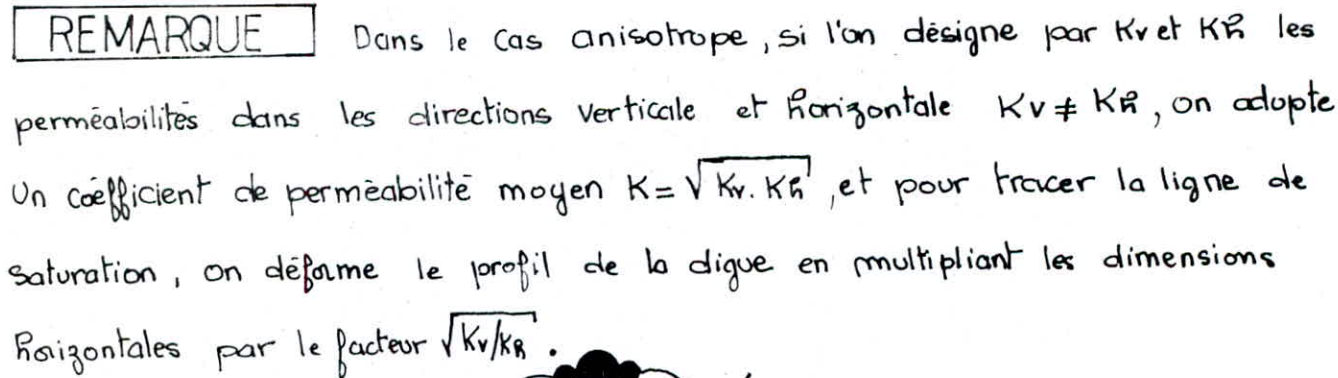 REMARQUE Dans le cas anisotrope, si l'on désigne par Kv et Kh les
perméabilités dans les directions verticale et horizontale Kv ≠ Kh, on adopte
Un coéfficient de perméabilité moyen K = √Kv. Kh, et pour tracer la ligne de
saturation, on déforme le profil de la digue en multipliant les dimensions
horizontales par le facteur √Kv/Kh.